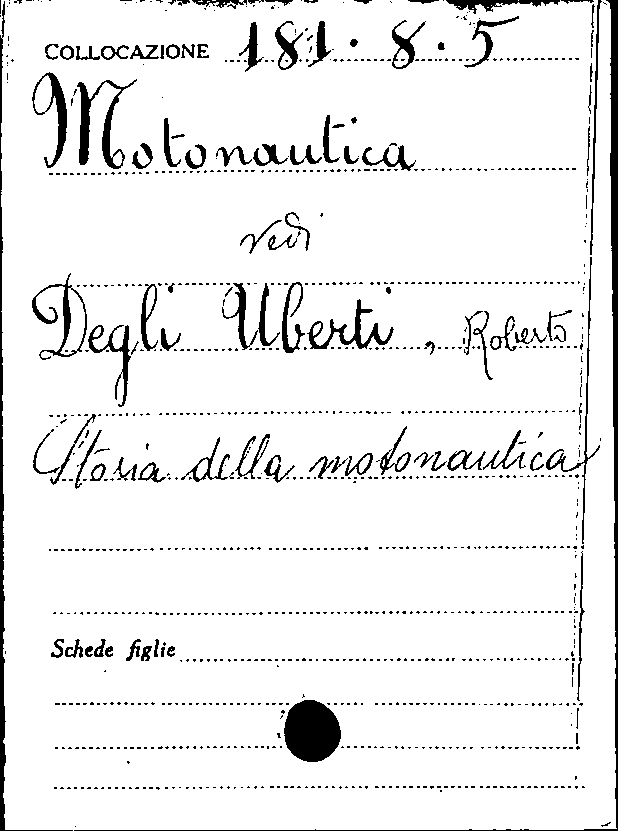 COLLOCAZIONE 181.8.5
Motonautica
vedi
Degli Uberti, Roberto
Storia della motonautica
Schede figlie